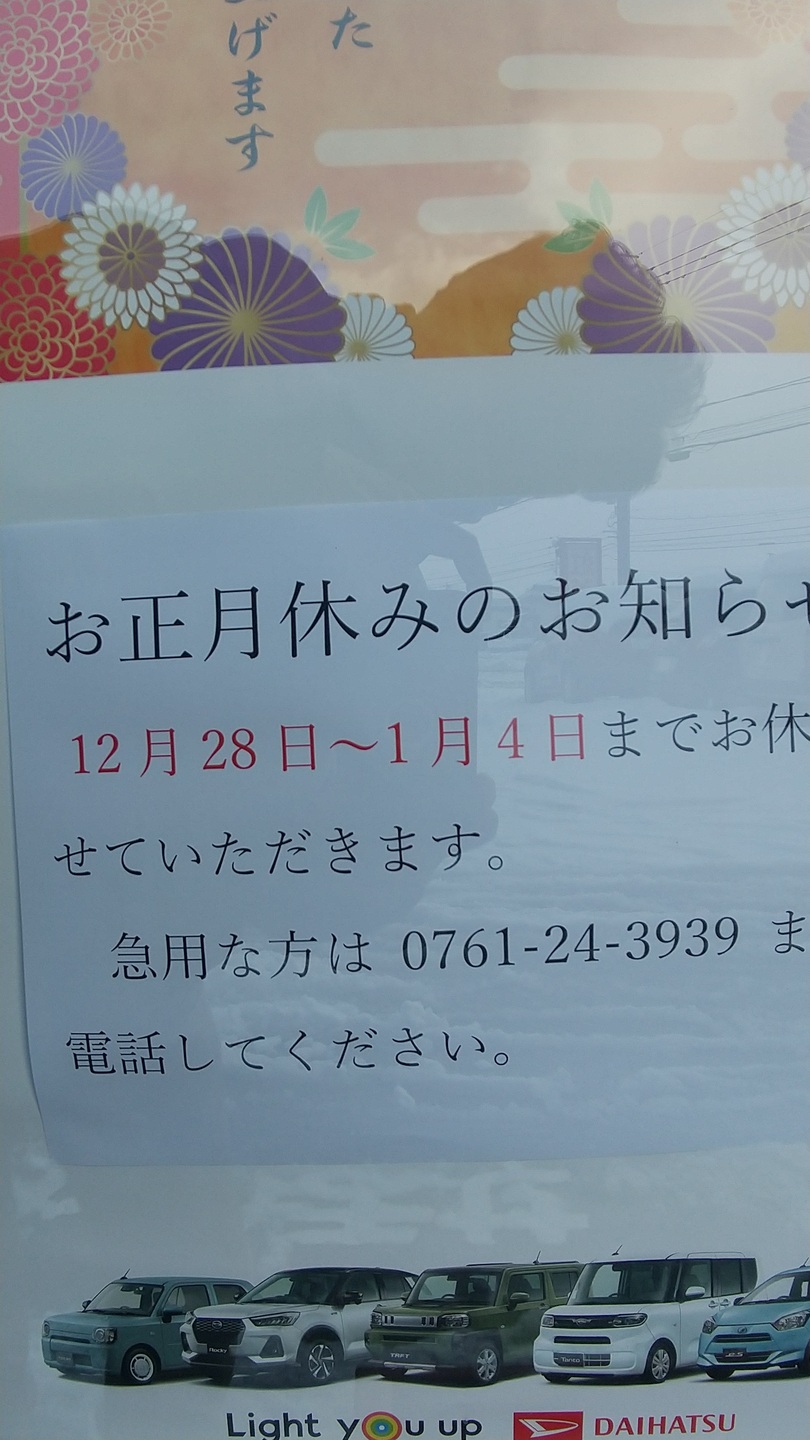 た
げます
お正月休みのお知らせ
12月28日～1月4日までお休
せていただきます。
急用な方は 0761-24-3939 ま
電話してください。
Rocky
TAFT
Tanto
Light you up
DAIHATSU